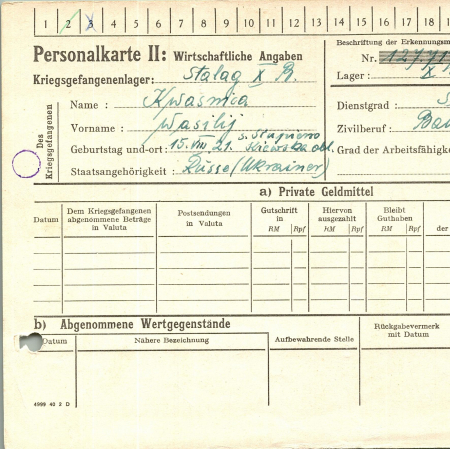 1 2 3 4 5 6 7 8 9 10 11 12 13 14 15 16 17 18
Personalkarte II: Wirtschaftliche Angaben
Beschriftung der Erkennungsm
Nr. 12771
Kriegsgefangenenlager: Stalag X B.
Lager: X
Des Kriegsgefangenen
Name: Kwasnica
Dienstgrad: S
Vorname: Wasilij
Zivilberuf: Bau
Geburtstag und-ort: 15.VIII.21. s. Stupieno Kiewska obl.
Grad der Arbeitsfähigke
Staatsangehörigkeit: Russe (Ukrainer)
a) Private Geldmittel
Datum
Dem Kriegsgefangenen abgenommene Beträge in Valuta
Postsendungen in Valuta
Gutschrift in
RM Rpf
Hiervon ausgezahlt
RM Rpf
Bleibt Guthaben
RM Rpf
der
b) Abgenommene Wertgegenstände
Datum
Nähere Bezeichnung
Aufbewahrende Stelle
Rückgabevermerk mit Datum
4999 40 2 D